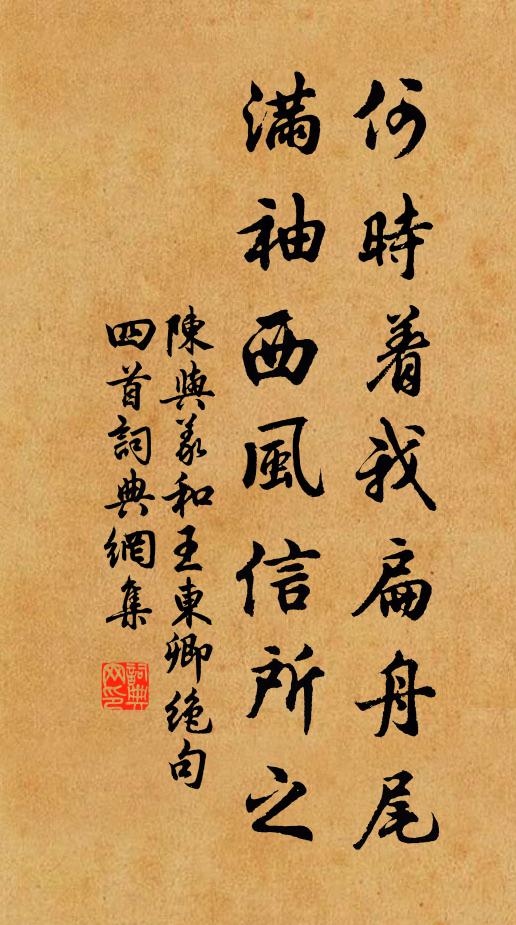 何時着我扁舟尾
滿袖西風信所之
陳與義和王東卿絕句
四首詞典網集
詞典網印